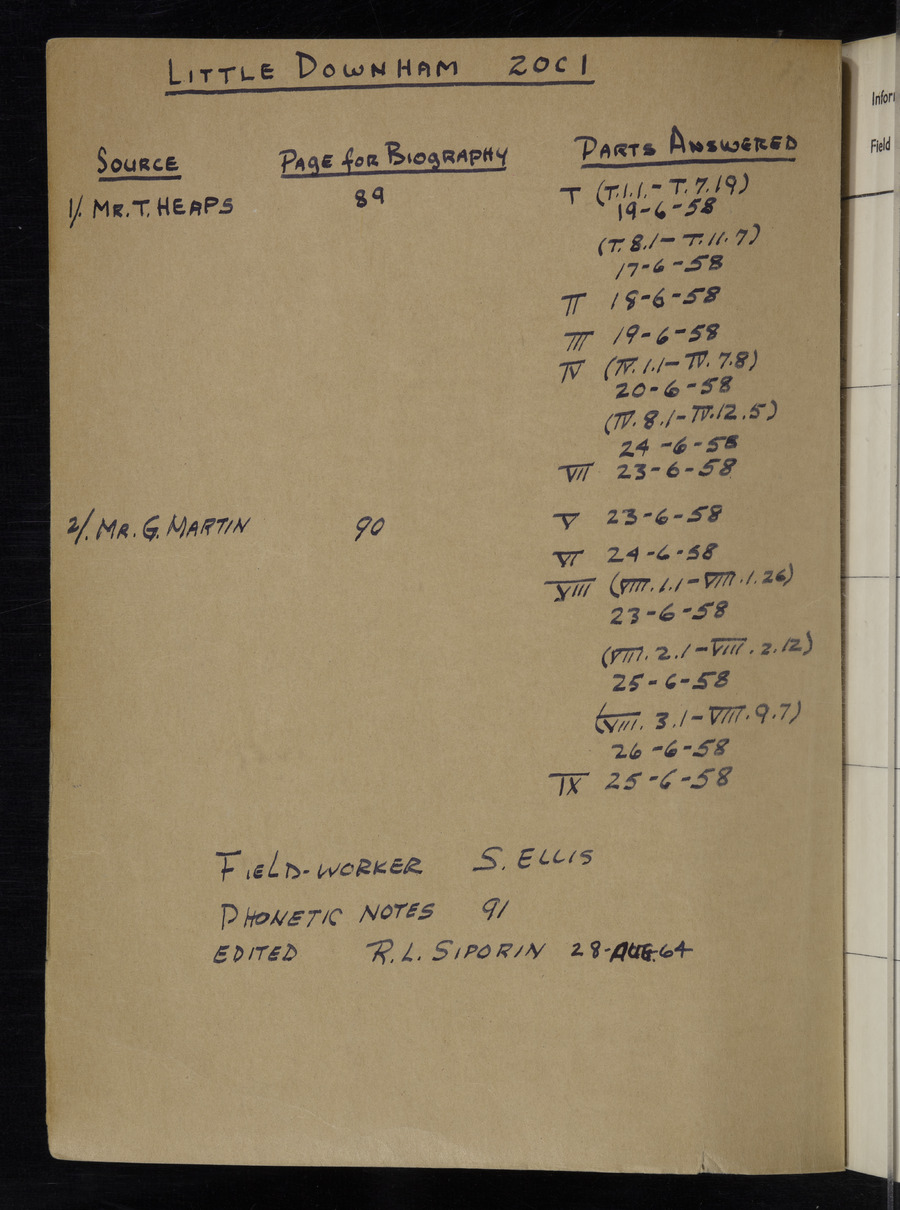 LITTLE DOWNHAM 20C1
SOURCE PAGE FOR BIOGRAPHY PARTS ANSWERED
1/. MR. T. HEAPS 89 I (I.1.1. - I.7.19)
19-6-58
(I.8.1 - I.11.7)
17-6-58
II 18-6-58
III 19-6-58
IV (IV.1.1 - IV.7.8)
20-6-58
(IV.8.1 - IV.12.5)
24-6-58
VII 23-6-58
2/. MR. G. MARTIN 90 V 23-6-58
VI 24-6-58
VIII (VIII.1.1 - VIII.1.26)
23-6-58
(VIII.2.1 - VIII.2.12)
25-6-58
(VIII.3.1 - VIII.9.7)
26-6-58
IX 25-6-58
FIELD-WORKER S. ELLIS
PHONETIC NOTES 91
EDITED R.L. SIPORIN 28-AUG.64
Infor
Field